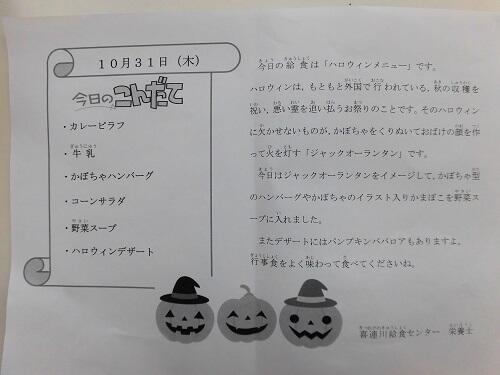 10月31日（木）
今日のこんだて
・カレーピラフ
・牛乳
・かぼちゃハンバーグ
・コーンサラダ
・野菜スープ
・ハロウィンデザート
今日の給食は「ハロウィンメニュー」です。
ハロウィンは、もともと外国で行われている、秋の収穫を
祝い、悪い霊を追い払うお祭りのことです。そのハロウィン
に欠かせないものが、かぼちゃをくりぬいておばけの顔を作
って火を灯す「ジャックオーランタン」です。
今日はジャックオーランタンをイメージして、かぼちゃ型
のハンバーグやかぼちゃのイラスト入りかまぼこを野菜ス
ープに入れました。
またデザートにはパンプキンババロアもありますよ。
行事食をよく味わって食べてくださいね。
喜連川給食センター　栄養士